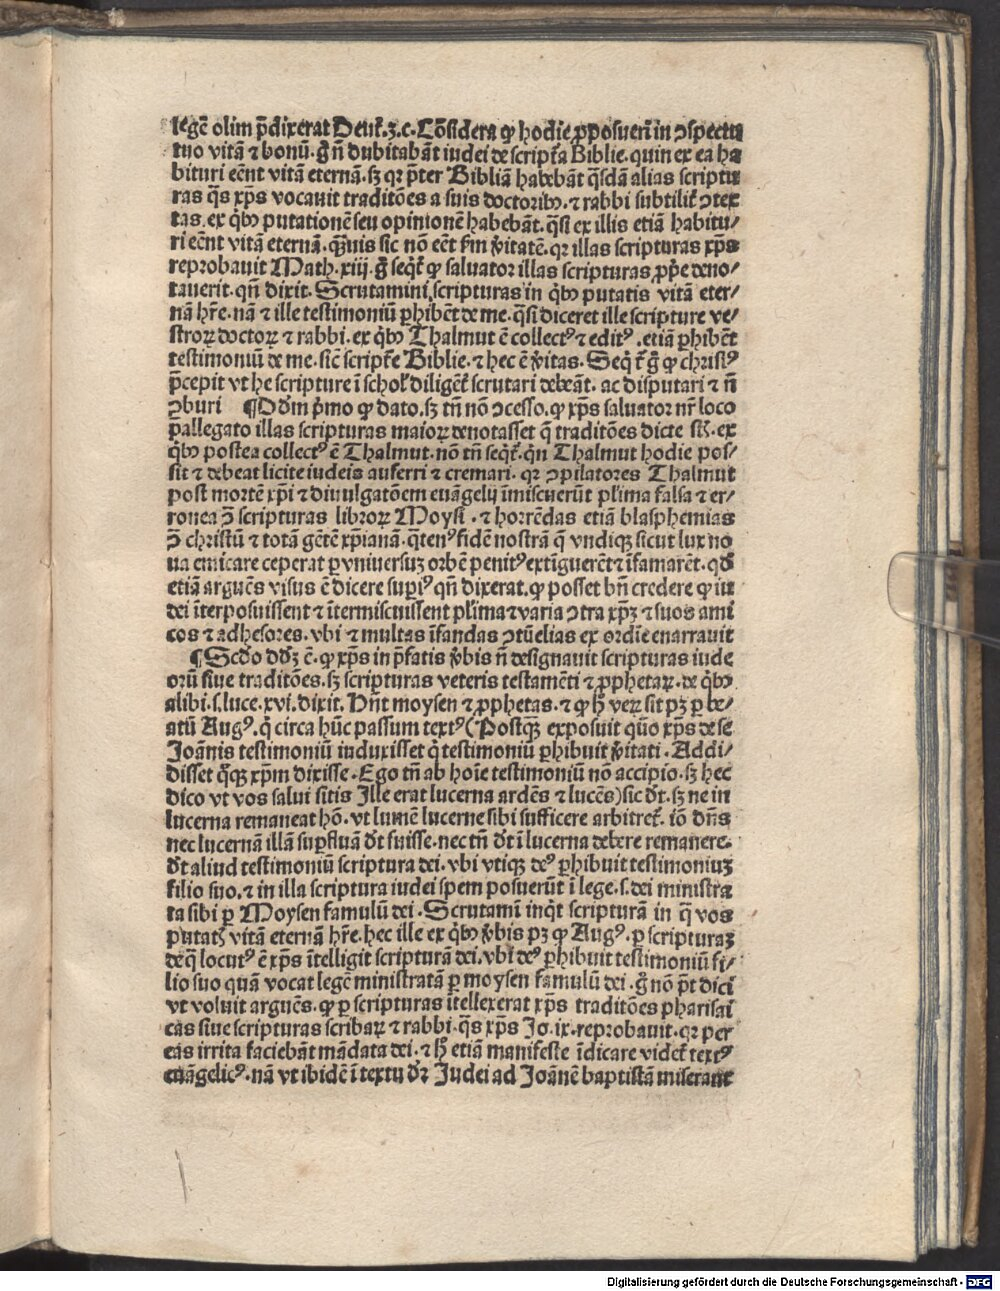 legē olim p̄dixerat Deut̄.3.c. Cōsidera ꝙ hodie ꝓposuerī in ↄspectu
tuo vitā ⁊ bonū. ḡ nō dubitabāt iudei de script̄a Biblie. quin ex ea ha
bituri eēnt vitā eternā. sꝫ qꝛ p̄ter Bibliā habebāt q̄sdā alias scriptu
ras q̄s xp̄s vocauit traditōes a suis doctoribꝫ. ⁊ rabbi subtilit̄ ↄtex
tas. ex q̇bꝫ putationē seu opinionē habebāt. q̄si ex illis etiā habitu⸗
ri eēnt vitā eternā. q̄uis sic nō eēt fm̄ v̄itatē. qꝛ illas scripturas xp̄s
reprobauit Math. xiij. ḡ seqt̄ ꝙ saluator illas scripturas ꝓp̄e deno⸗
tauerit. qn̄ dixit. Scrutamini scripturas in q̇bꝫ putatis vitā eter⸗
nā hr̄e. nā ⁊ ille testimoniū ꝑhibēt de me. q̄si diceret ille scripture ve⸗
stroꝝ doctoꝝ ⁊ rabbi. ex q̇bꝫ Thalmut ē collectꝰ ⁊ editꝰ. etiā ꝑhibēt
testimoniū de me. sic̄ script̄e Biblie. ⁊ hec ē v̄itas. Seqt̄ ḡ ꝙ christꝰ
p̄cepit vt he scripture ī schol̄ diligēt̄ scrutari debeāt. ac disputari ⁊ nō
ↄburi ¶ Ad dm̄ p̄mo ꝙ dato. sꝫ tn̄ nō ↄcesso. ꝙ xp̄s saluator nr̄ loco
p̄allegato illas scripturas maioꝝ denotasset q̄ traditōes dicte sūt. ex
q̇bꝫ postea collectꝰ ē Thalmut. nō tn̄ seqt̄. qn̄ Thalmut hodie pos⸗
sit ⁊ debeat licite iudeis auferri ⁊ cremari. qꝛ ↄpilatores Thalmut
post mortē xp̄i ⁊ diuulgatōem euāgelij īmiscuerūt pl̄ima falsa ⁊ er⸗
ronea ↄ̄ scripturas libroꝝ Moysi. ⁊ horrēdas etiā blasphemias
ↄ̄ christū ⁊ totā gētē xp̄ianā. q̄tenꝰ fidē nostrā q̄ vndiqꝫ sicut lux no
ua emicare ceperat ꝑ vniuersuꝫ orbē penitꝰ extīguerēt ⁊ īfamarēt. qd̄
etiā arguēs visus ē dicere supiꝰ qn̄ dixerat. ꝙ posset bn̄ credere ꝙ iu
dei īterposuissent ⁊ ītermiscuissent pl̄ima ⁊ varia ↄtra xp̄ꝫ ⁊ suos ami
cos ⁊ adhesores. vbi ⁊ multas īfandas ↄtūelias ex ordīe enarrauit
¶ Scd̄o dd̄ꝫ ē. ꝙ xp̄s in p̄fatis v̄bis nō designauit scripturas iude
orū siue traditōes. sꝫ scripturas veteris testamēti ⁊ ꝓphetaꝝ. de q̇bꝫ
alibi. s. luce. xvi. dixit. Hn̄t moysen ⁊ ꝓphetas. ⁊ ꝙ hꝫ veꝝ sit pꝫ ꝑ be⸗
atū Augꝰ. q̇ circa hūc passum textꝰ (Postqꝫ exposuit quō xp̄s de se
Joānis testimoniū induxisset q̇ testimoniū ꝑhibuit v̄itati. Addi⸗
disset q̄qꝫ xp̄m dixisse. Ego tn̄ ab hoīe testimoniū nō accipio. sꝫ hec
dico vt vos salui sitis Ille erat lucerna ardēs ⁊ lucēs) sic dt̄. sꝫ ne in
lucerna remaneat hō. vt lumē lucerne sibi sufficere arbitret̄. iō dn̄s
nec lucernā illā supfluā dt̄ fuisse. nec tn̄ dt̄ ī lucerna debere remanere.
dt̄ aliud testimoniū scriptura dei. vbi vtiqꝫ deꝰ ꝑhibuit testimoniuꝫ
filio suo. ⁊ in illa scriptura iudei spem posuerūt ī lege. s. dei ministra
ta sibi ꝑ Moysen famulū dei. Scrutamī inqt̄ scripturā in q̄ vos
putatꝭ vitā eternā hr̄e. hec ille ex q̇bꝫ v̄bis pꝫ ꝙ Augꝰ. ꝑ scripturaꝫ
de q̄ locutꝰ ē xp̄s ītelligit scripturā dei. vbi deꝰ ꝑhibuit testimoniū fi⸗
lio suo quā vocat legē ministratā ꝑ moysen famulū dei. ḡ nō pt̄ dici
vt voluit arguēs. ꝙ ꝑ scripturas ītellexerat xp̄s traditōes pharisai
cas siue scripturas scribaꝝ ⁊ rabbi. q̄s xp̄s Jo. ix. reprobauit. qꝛ per
eas irrita faciebāt mādata dei. ⁊ hꝫ etiā manifeste īdicare videt̄ textꝰ
euāgelicꝰ. nā vt ibidē ī textu dꝛ Judei ad Joānē baptistā miserant
Digitalisierung gefördert durch die Deutsche Forschungsgemeinschaft - DFG